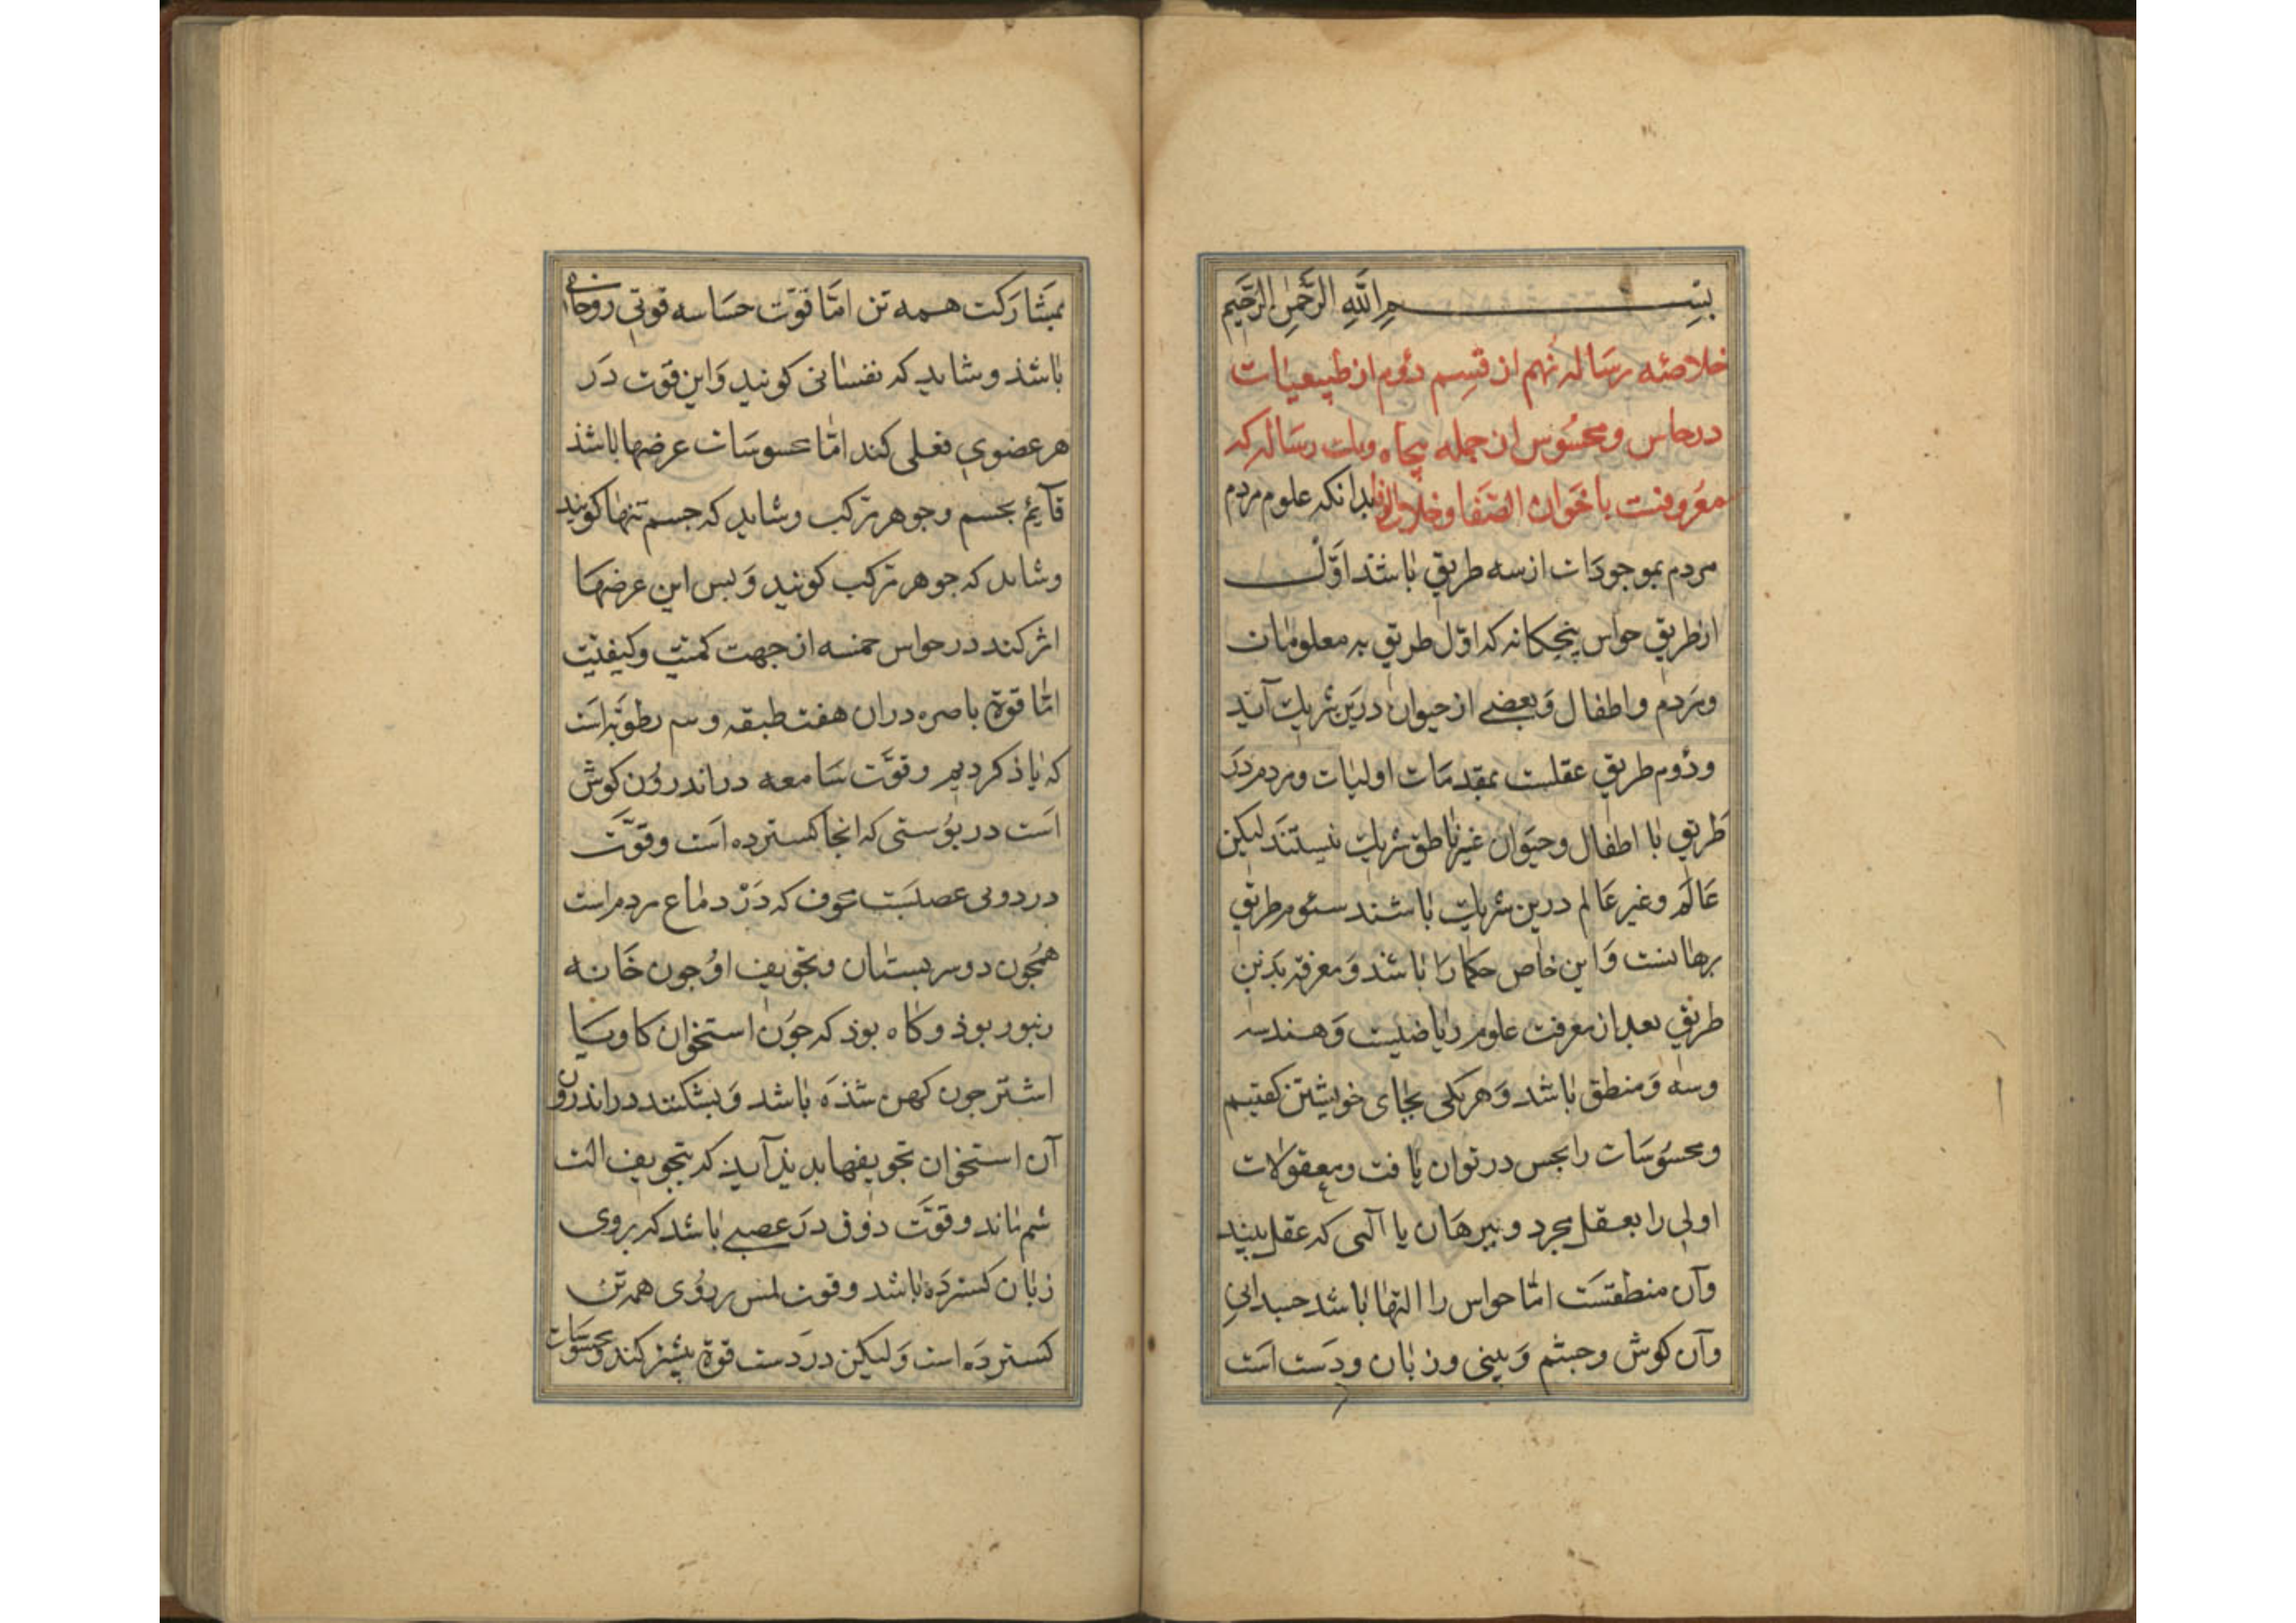 بسم الله الرحمن الرحیم
خلاصئه رساله نهم از قسم دؤم از طبیعیات
در حاس و محسوس از جمله پنجاه ویک رساله که
معروفست باخوان الصفا وخلان الوفا بدانکه علوم مردم
مردم بموجودات از سه طریق باشذ اوّل
از طریق حواس پنجکانه که اوّل طریق به معلومات
و مردم و اطفال وبعضی از حیوان درین شریک آیند
و دؤم طریق عقلست بمقدمات اولیات و مردم در
طریق با اطفال و حیوان غیر ناطق شریک نیستند لیکن
عالم و غیر عالم درین شریک باشند سئوم طریق
برهانست و این خاص حکما را باشد و معرفة بدین
طریق بعد از معرفت علوم ریاضیت و هندسه
وسه و منطق باشد و هریکی بجای خویشتن کفتیم
و محسوسات را بحس در توان یافت و معقولات
اولی را بعقل مجرد و ببرهان یا آلتی که عقل بیند
وآن منطقست امّا حواس را التها باشد جسدانی
وآن کوش و جشم و بینی و زبان و دست است
بمشارکت همه تن امّا قوّت حساسه قوتی روحانی
باشذ و شاید که نفسانی کویند واین قوت در
هر عضوی فعلی کند امّا محسوسات عرضها باشذ
قآیم بجسم و جوهر مرکب و شاید که جسم تنها کویند
و شاید که جوهر مرکب کویند و بس این عرضها
اثر کند در حواس خمسه از جهت کمیّت و کیفیّت
امّا قوة باصره در ان هفت طبقه و سه رطوبة است
که یاذ کردیم و قوّت سامعه در اندرون کوش
است در پوستی که انجا کسترده است و قوّت
در دوی عصبست مجوف که در دماغ مردم است
همجون دو سر پستان و تجویف او جون خانه
زنبور بوذ و کاه بوذ که جون استخوان کاو و یا
اشتر جون کهن شذه باشد و بشکنند در اندرون
آن استخوان تجویفها بدیذ آیذ که بتجویف الت
شم ماند و قوّت ذوق در عصبی باشد که بروی
زبان کسترده باشد و قوت لمس بر روی همه تن
کسترده است ولیکن در دست قوة بیشتر کند و محسوسات